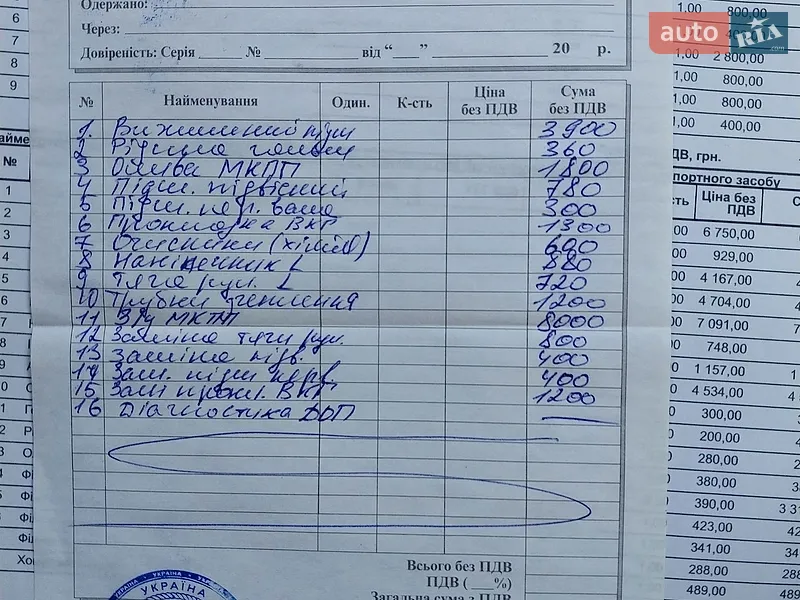 Одержано:
Через:
Довіреність: Серія № від “ ” 20 р.
auto RIA .com
№ Найменування Один. К-сть Ціна без ПДВ Сума без ПДВ
1. Вижимний підш 3900
2 Рідина гальм 360
3 Олива МКПП 1800
4 Підш. підвісний 780
5 Підш. перв. вала 300
6 Прокладка ВКГ 1300
7 Очисники (хімія) 600
8 Наконечник L 880
9 Тяга рул. L 720
10 Трубки 1200
11 З/у МКПП 8000
12 Заміна тяги рул. 800
13 Заміна підв. 400
14 Зам. підш перв. 400
15 Зам прокл. ВКГ 1200
16 Діагностика ДОП
Всього без ПДВ
ПДВ ( %)
Загальна сума з ПДВ
УКРАЇНА
6
7
8
9
№
1
2
3
4
5
6
1,00 800,00
1,00 2 800,00
800,00
1,00 800,00
1,00 400,00
ДВ, грн.
портного засобу
сть Ціна без ПДВ
00 6 750,00
00 929,00
00 4 167,00
00 4 704,00
00 7 091,00
00 748,00
00 1 157,00
00 4 534,00
00 300,00
200,00
280,00
380,00
390,00
423,00
341,00
288,00
489,00